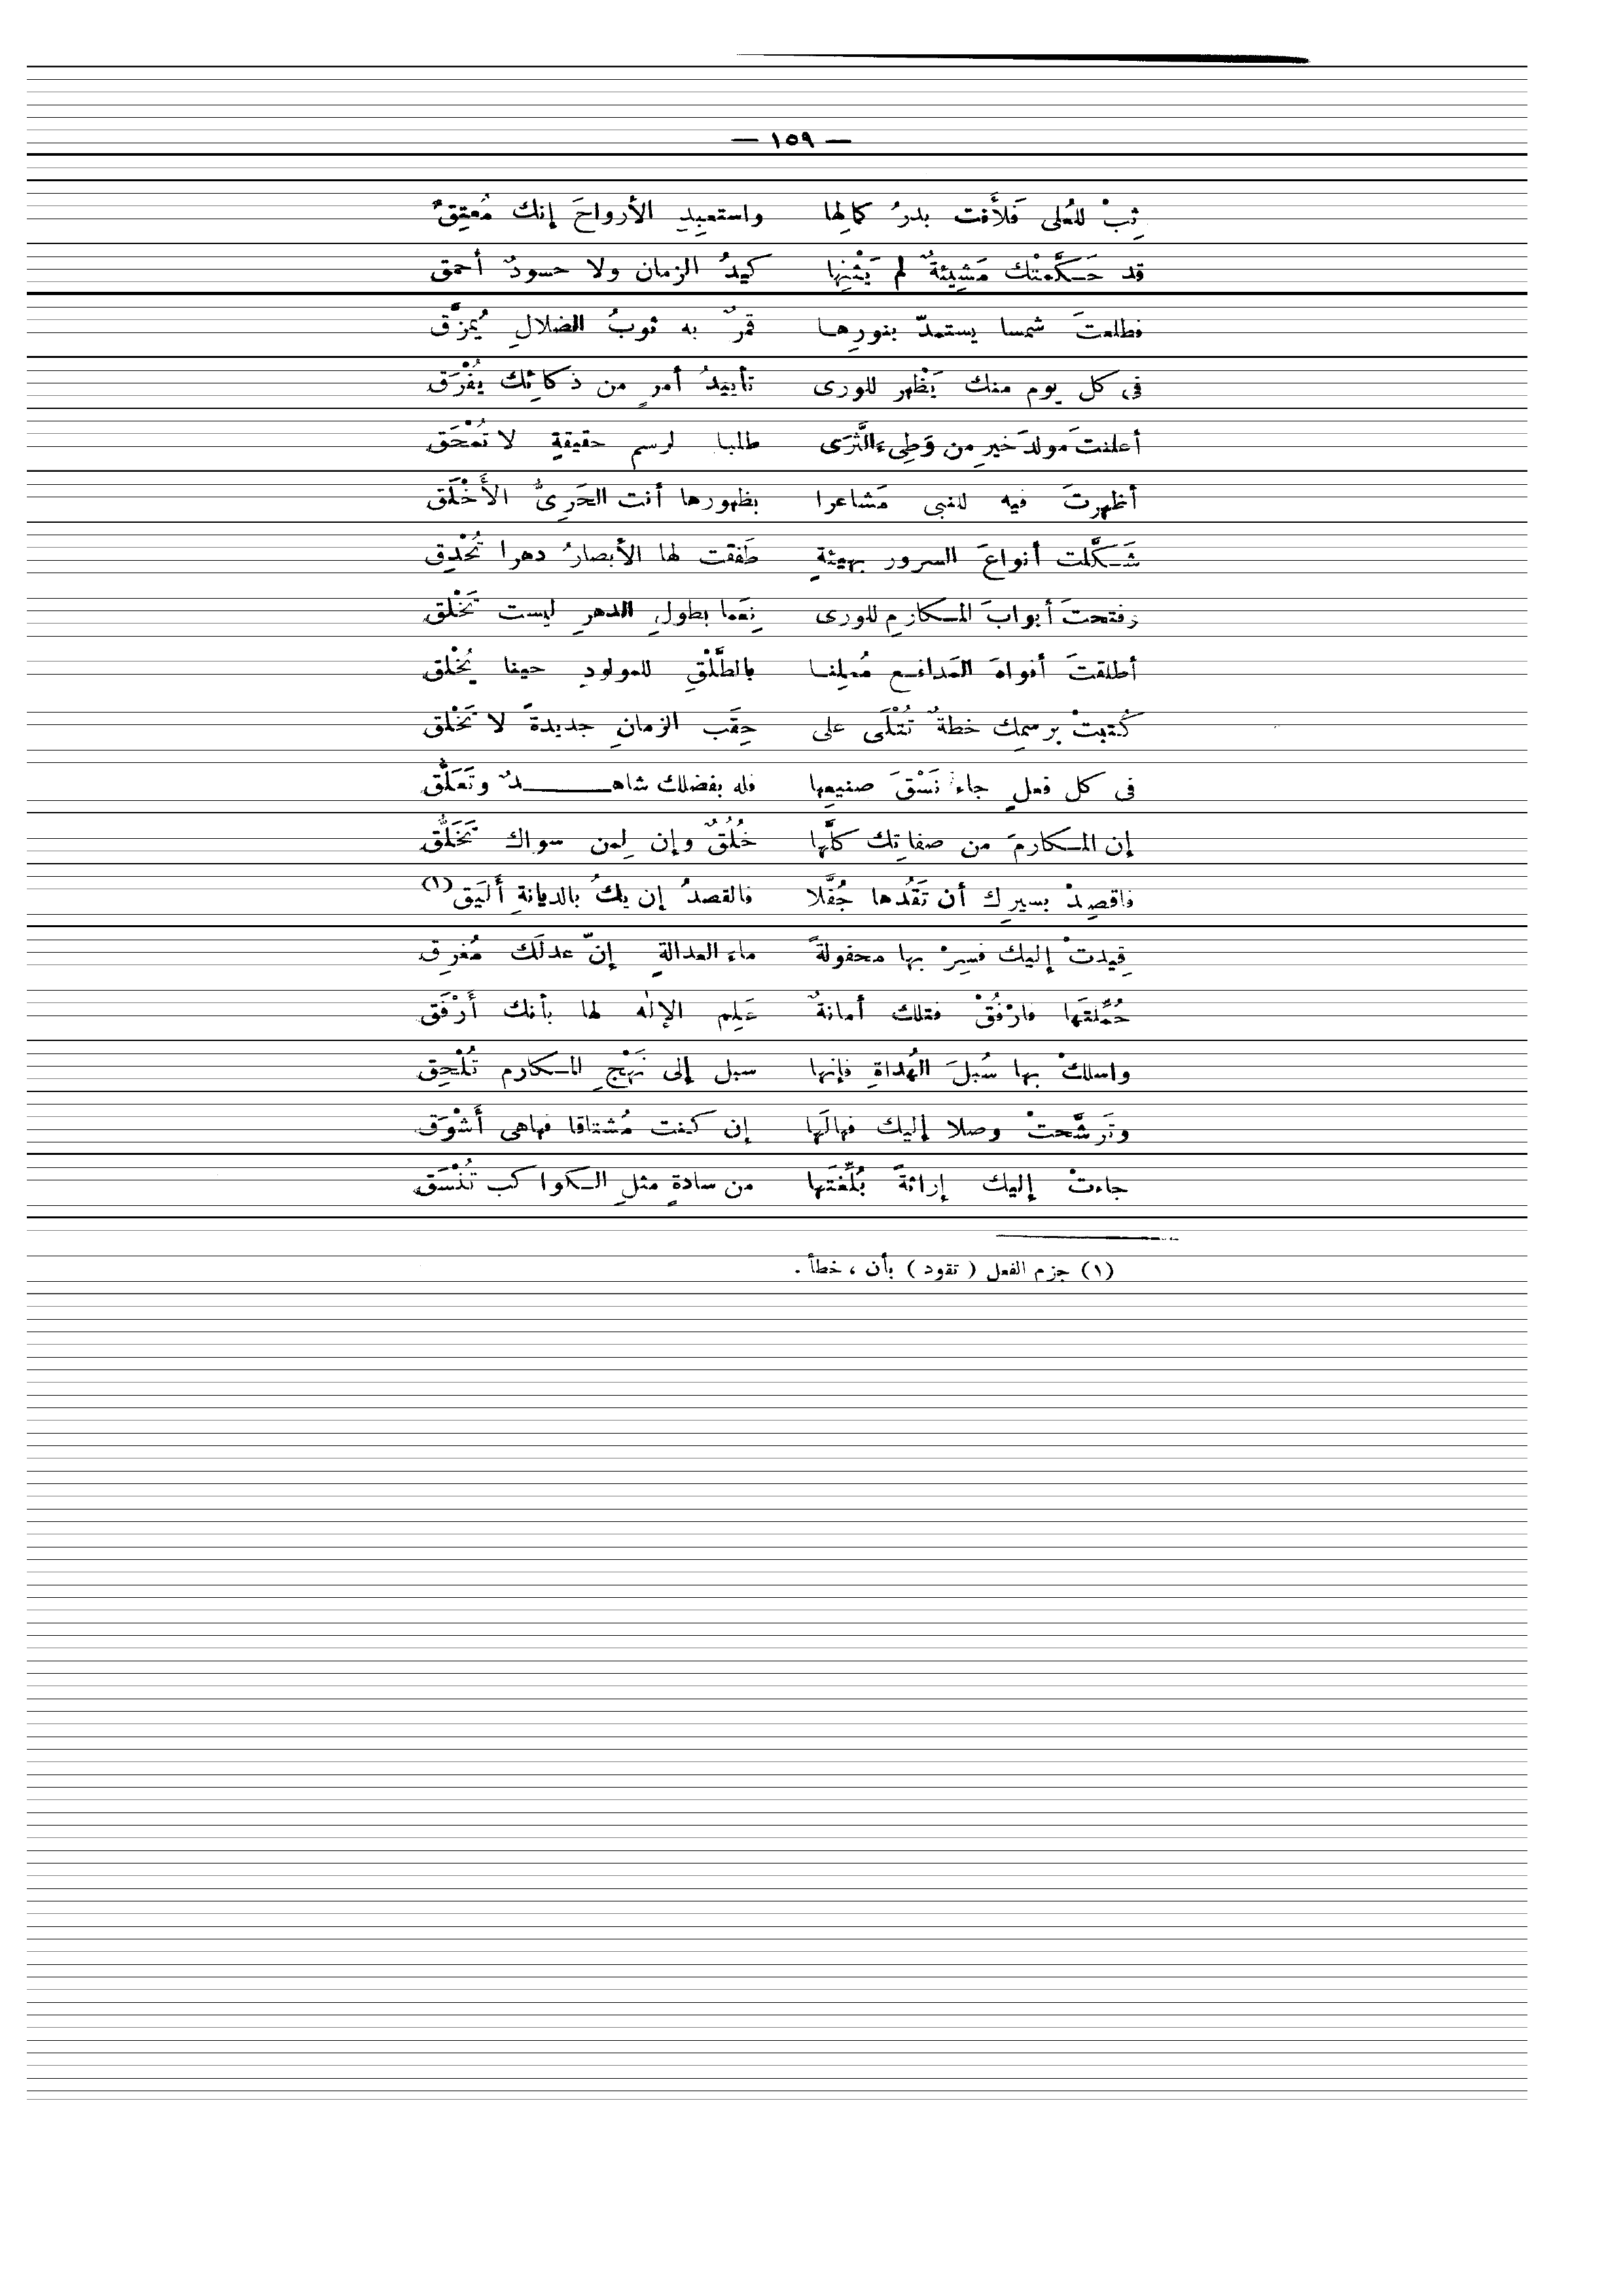 — ١٥٩ —
ثِبْ للعُلى فَلأَنت بدرُ كمالِها واستعبِدِ الأرواحَ إنك مُعتِقٌ
قد حَكَّمتْك مَشِيئةٌ لم يَثْنِها كيدُ الزمان ولا حسودٌ أحمق
فطلعتَ شمسا يستمدّ بنورِها قمرٌ به ثوبُ الضلالِ يُمزَّق
فى كل يوم منك يَظْهر للورى تأييدُ أمرٍ من ذكائِك يُفْرَق
أعلنتَ مولدَ خيرِ من وَطِىءَ الثَّرَى طلبا لرسم حقيقةٍ لا تُمْحَق
أظهرتَ فيه للنبى مَشاعرا بظهورها أنت الحَرِىُّ الأَخْلَق
شَكَّلت أنواعَ السرور بهيئةٍ طَفقت لها الأبصارُ دهرا تُحْدِق
وفتحتَ أبوابَ المكارمِ للورى نِعَما بطولِ الدهرِ ليست تَخْلق
أطلقتَ أفواهَ المَدافع مُعلِنا بالطَّلْقِ للمولودِ حينا يُخْلق
كُتبتْ برسمِك خطةٌ تُتْلَى على حِقَب الزمانِ جديدةً لا تَخْلق
فى كل فعلٍ جاءَ نَسْقَ صنيعِها فله بفضلك شاهدٌ وتَعَلُّق
إن المكارمَ من صفاتِك كلَّها خُلُقٌ وإن لِمن سواك تَخَلُّق
فاقصِدْ بسيرِك أن تَقُدها جُفَّلا فالقصدُ إن يكُ بالديانةِ أَليَق (١)
قِيدتْ إليك فسِرْ بها محفولةً ماءَ العدالةِ إنّ عدلَك مُغرِق
حُمِّلتَها فارْفُقْ فتلك أمانةٌ عَلِم الإلٰه لها بأنك أَرْفَق
واسلكْ بها سُبلَ الهُداةِ فإنها سبل إلى نَهْجِ المكارم تُلْحِق
وتَرشَّحتْ وصلا إليك فهالَها إن كنت مُشتاقا فهاهى أَشْوَق
جاءتْ إليك إراثةً بُلِّغتَها من سادةٍ مثلِ الكواكب تُنْسَق
(١) جزم الفعل ( تقود ) بأن ، خطأ .